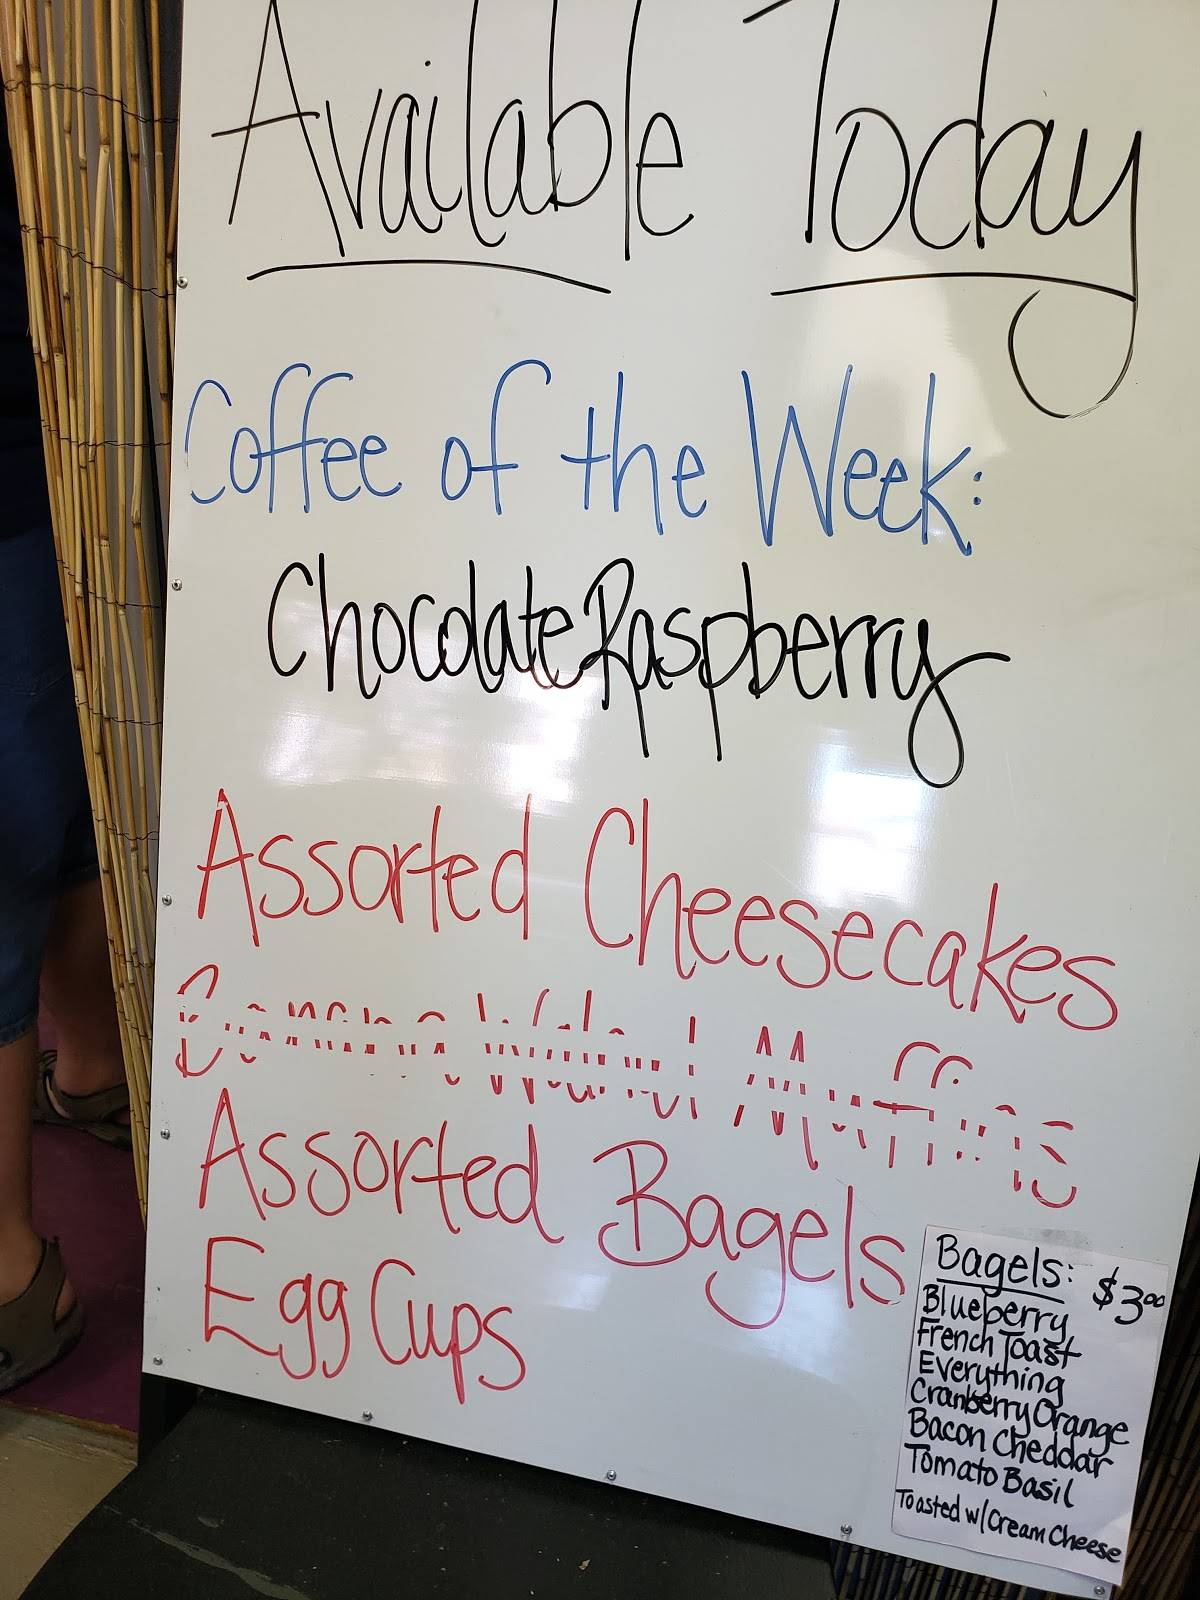 Available Today
Coffee of the Week:
Chocolate Raspberry
Assorted Cheesecakes
Banana Walnut Muffins
Assorted Bagels
Egg Cups
Bagels: $3.00
Blueberry
French Toast
Everything
Cranberry Orange
Bacon Cheddar
Tomato Basil
Toasted w/ Cream Cheese